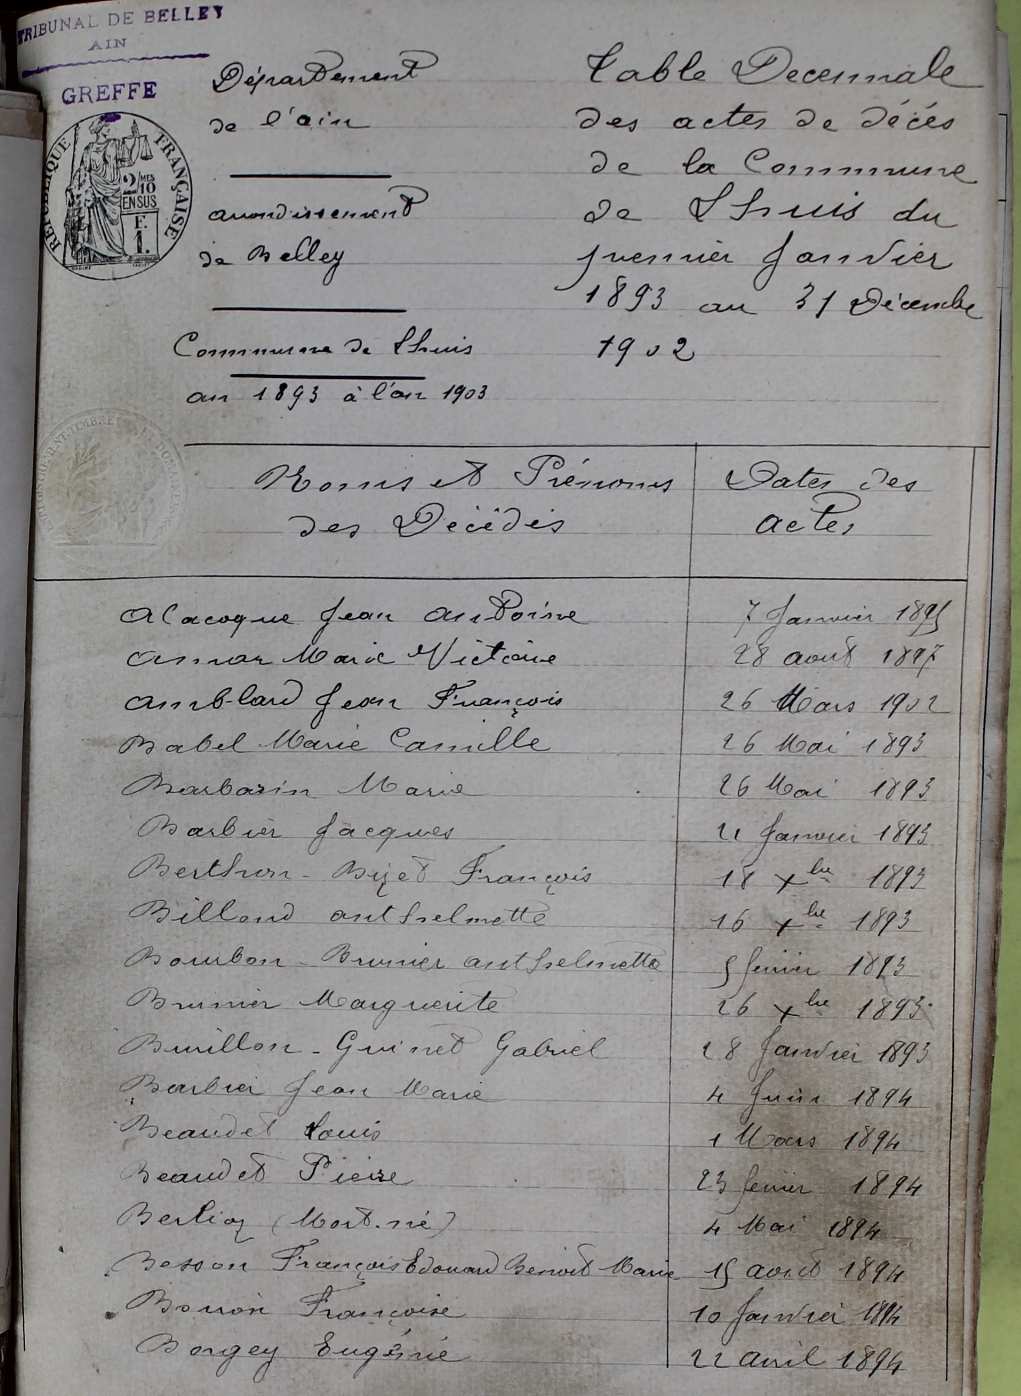 TRIBUNAL DE BELLEY
AIN
GREFFE
RÉPUBLIQUE FRANÇAISE
2/MES
10
EN SUS
F.
1.
Département
de l'ain
arrondissement
de Belley
Commune de Lhuis
an 1893 à l'an 1903
Table Decennale
des actes de décés
de la Commune
de Lhuis du
premier Janvier
1893 au 31 Décembre
1902
Noms et Prénoms
des Décédés
Dates des
actes
Alacoque Jean Antoine 7 Janvier 1895
Marie Victoire 28 aout 1897
Amblard Jean François 26 Mars 1902
Babel Marie Camille 26 Mai 1893
Barbarin Marie 26 Mai 1893
Barbier Jacques 21 Janvier 1893
Berthon - François 18 xbre 1893
Billond anthelmette 16 xbre 1893
Bourbon - Brunier anthelmette 5 fevrier 1893
Brunier Marguerite 26 xbre 1893
Burillon - Guinet Gabriel 28 Janvier 1893
Barbier Jean Marie 4 1894
Beaudet Louis 1 Mars 1894
Beaudet Pierre 23 fevrier 1894
Berlioz (Mort-né) 4 Mai 1894
Besson François Edouard Benoit Marie 15 août 1894
Françoise 10 Janvier 1894
Borgey Eugénie 22 avril 1894